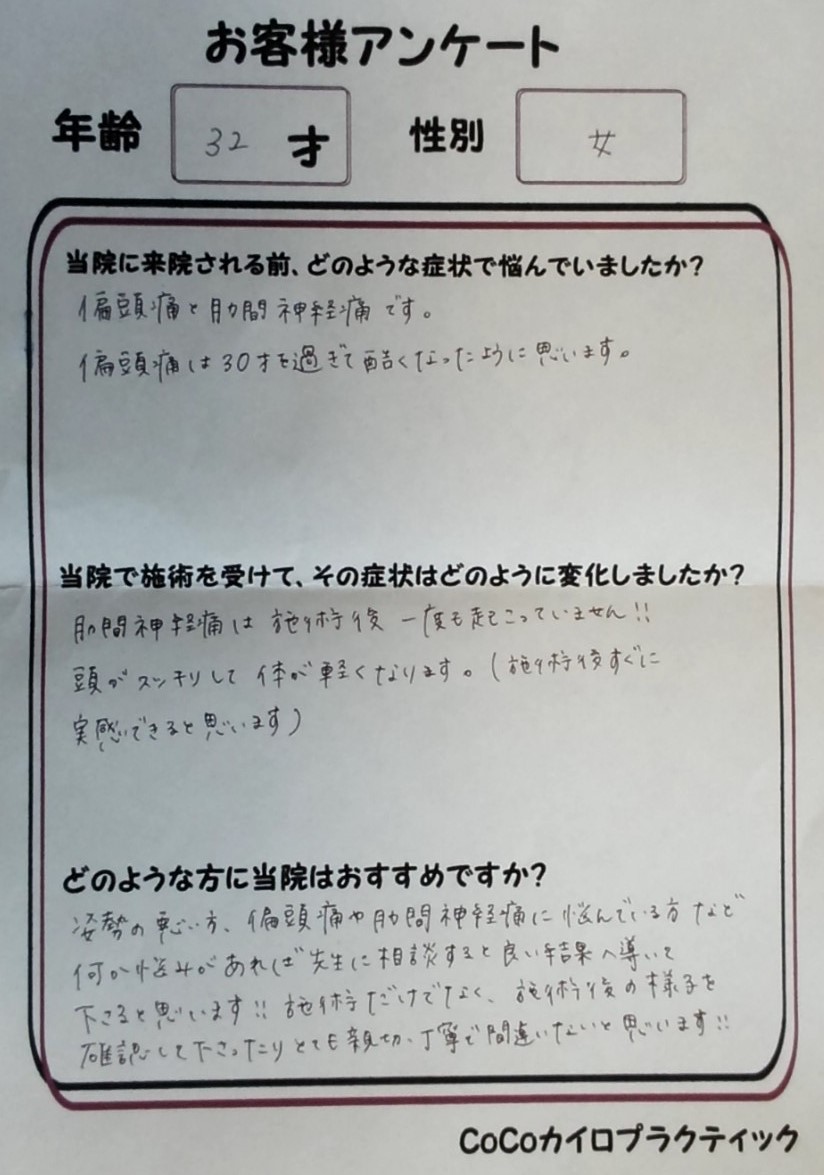 お客様アンケート
年齢 32 才 性別 女
当院に来院される前、どのような症状で悩んでいましたか?
偏頭痛と肋間神経痛です。
偏頭痛は30才を過ぎて酷くなったように思います。
当院で施術を受けて、その症状はどのように変化しましたか?
肋間神経痛は施術後一度も起こっていません!!
頭がスッキリして体が軽くなります。(施術後すぐに
実感できると思います)
どのような方に当院はおすすめですか?
姿勢の悪い方、偏頭痛や肋間神経痛に悩んでいる方など
何か悩みがあれば先生に相談すると良い結果へ導いて
下さると思います!!施術だけでなく、施術後の様子を
確認して下さったりとても親切、丁寧で間違いないと思います!!
CoCoカイロプラクティック